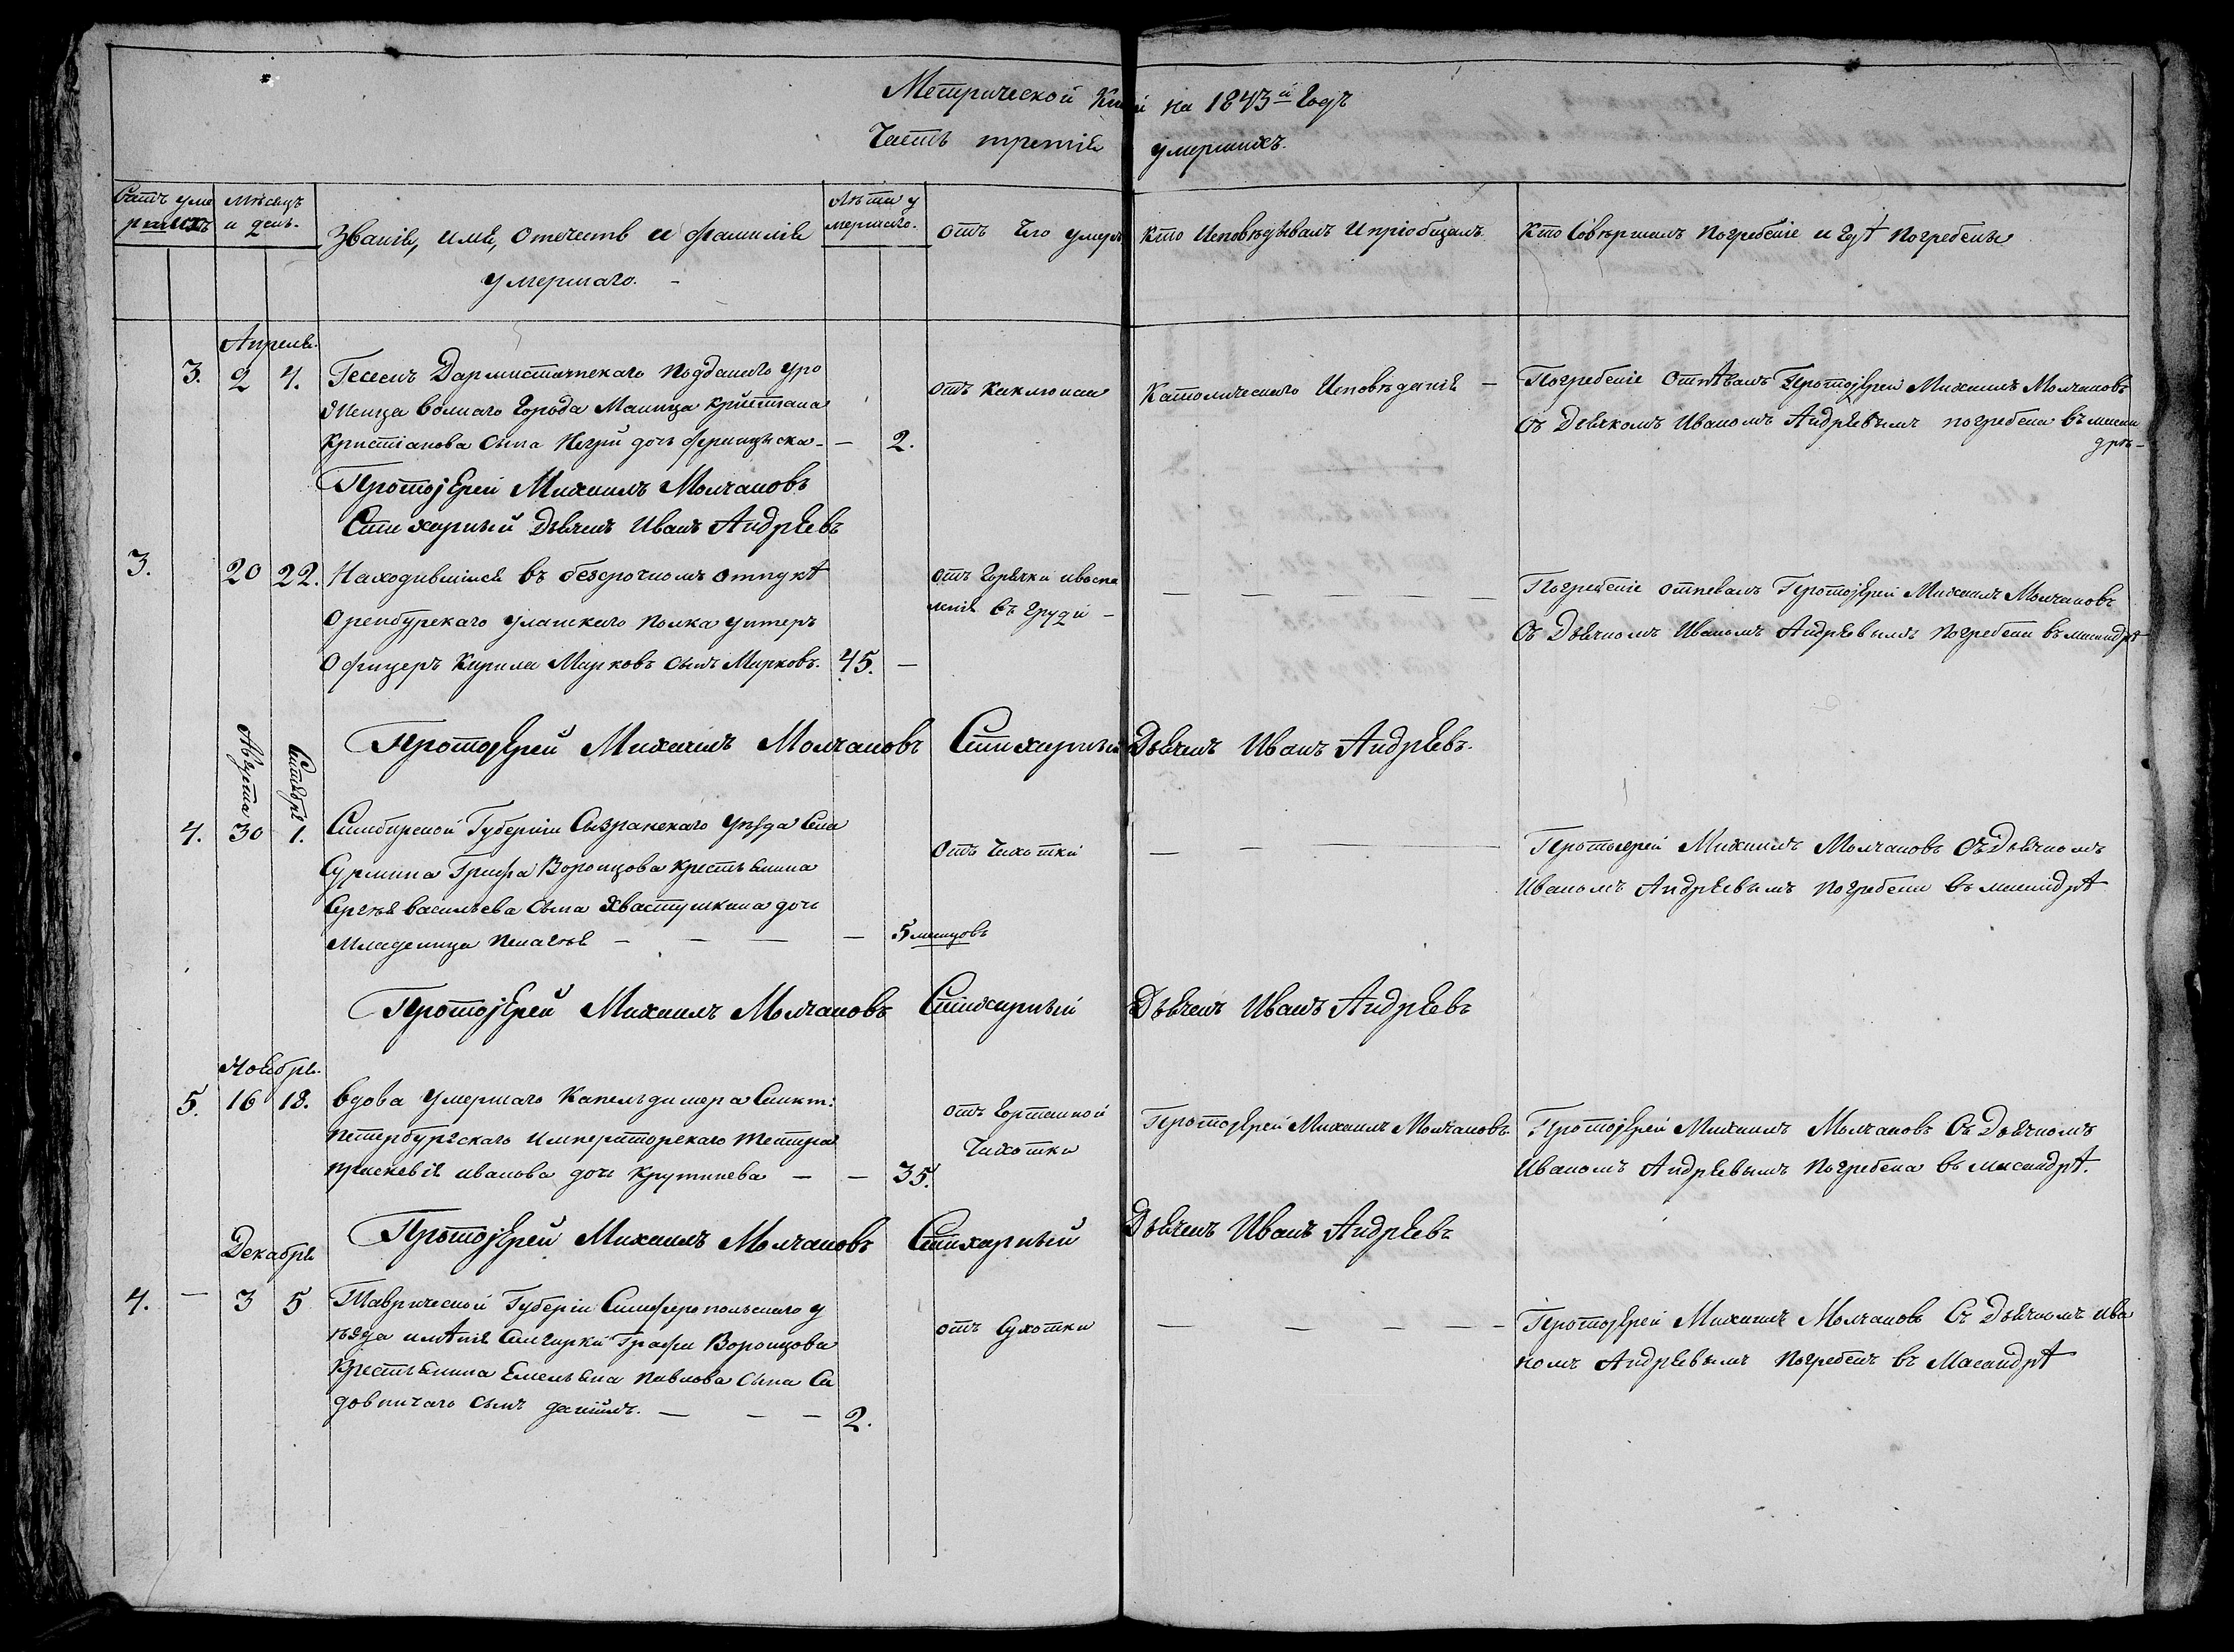 Метрической Книги на 1843й Годъ
Часть третія умершихъ.
Счетъ уме
ршихъ
Мѣсяцъ
и день.
Званіе, имя, отечеств и фамилія
умершаго.
Лѣта у
мершаго.
отъ чего умеръ
кто Исповѣдывалъ и пріобщалъ
кто Совершалъ погребеніе и гдѣ погребены
Апреля.
3. 2 4. Гесенъ Дармистатскаго подданаго уро
женца волнаго города Маинца кристiана
кристіанова сына Негри дочь францыска - — 2.
отъ каклюша
Католическаго Исповѣданія —
Погребеніе отпѣвалъ Протоjерей Михаилъ Молчановъ
Съ Дьячкомъ Иваномъ Андрѣевымъ погребена въ маса
дрѣ-
Протоjерей Михаилъ Молчановъ
Стихарный Дьячекъ Иванъ Андрѣевъ
3. 20 22. Находившiися въ безсрочномъ отпускѣ
Оренбурскаго уланскаго полка унтеръ
Офицеръ Кирила Марковъ сынъ Марковъ. 45. —
отъ Горячки и воспа
ленія въ груди —
Погребеніе отпевалъ Протоjерей Михаилъ Молчановъ
Съ Дьячкомъ Иваномъ Андрѣевымъ погребенъ въ масандрѣ
Протоjерей Михаилъ Молчановъ Стихарный Дьячекъ Иванъ Андрѣевъ.
Августа
Сентября
4. 30 1. Симбирской Губерніи Сызранскаго уѣзда Села
Сурмина Графа Воронцова крестьянина
Сергея васильева сына Хвастушкина дочь
Младеница пелагея — — — — 5 месяцовъ
отъ Чихотки
Протоерей Михаилъ Молчановъ Съ Дьячкомъ
Иваномъ Андрѣевымъ погребена въ масандрѣ
Протоjерей Михаилъ Молчановъ Стихарный Дьячекъ Иванъ Андрѣевъ
Ноября.
5. 16 18. вдова умершаго Капельдинера Санкт:
петербургскаго императорскаго театра
праскевія иванова дочь Крутинева — — 35.
отъ Гортанной
Чихотки
Протоjерей Михаилъ Молчановъ.
Протоjерей Михаилъ Молчановъ Съ Дьячкомъ
Иваномъ Андрѣевымъ погребена въ масандрѣ.
Протоjерей Михаилъ Молчановъ Стихарный Дьячекъ Иванъ Андрѣевъ
Декабря
4. — 3 5 Таврической Губерніи Симферопольскаго у
ѣзда имѣнія Салгирки Графа Воронцова
Крестьянина Емельяна павлова сына Са
довничаго сынъ даніилъ. — — — 2.
отъ Сухотки
Протоjерей Михаилъ Молчановъ Съ Дьячкомъ Ива
номъ Андрѣевымъ погребенъ въ Масандрѣ